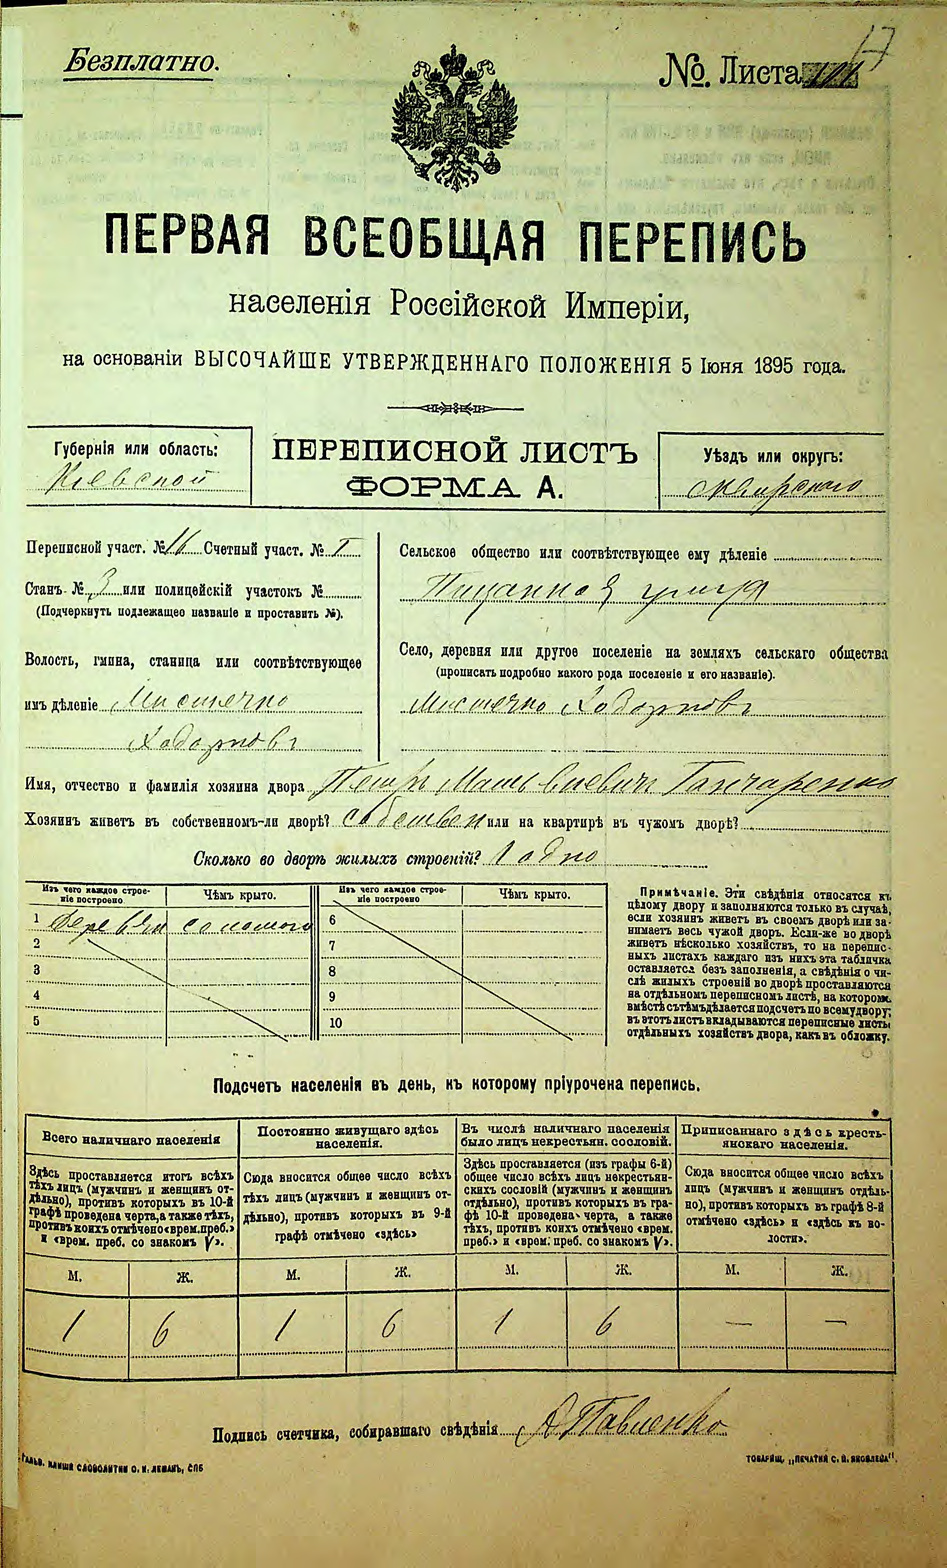 Безплатно.
17
№. Листа
ПЕРВАЯ ВСЕОБЩАЯ ПЕРЕПИСЬ
населенія Россійской Имперіи,
на основаніи ВЫСОЧАЙШЕ УТВЕРЖДЕННАГО ПОЛОЖЕНІЯ 5 Іюня 1895 года.
Губернія или область:
Кіевской
ПЕРЕПИСНОЙ ЛИСТЪ
ФОРМА А.
Уѣздъ или округъ:
Сквирскаго
Переписной участ. № 16 Счетный участ. № I
Станъ № 3 или полицейскій участокъ №
(Подчеркнуть подлежащее названіе и проставить №).
Волость, гмина, станица или соотвѣтствующее
имъ дѣленіе Мистечко
Ходорковъ
Сельское общество или соотвѣтствующее ему дѣленіе
улица
Село, деревня или другое поселеніе на земляхъ сельскаго общества
(прописать подробно какого рода поселеніе и его названіе).
Мистечко Ходорковъ
Имя, отчество и фамилія хозяина двора Петръ Матвиевичъ Ганчаренко
Хозяинъ живетъ въ собственномъ-ли дворѣ? собствен или на квартирѣ въ чужомъ дворѣ?
Сколько во дворѣ жилыхъ строеній? 1 одно
Изъ чего каждое строе-
ніе построено
Чѣмъ крыто.
Изъ чего каждое строе-
ніе построено
Чѣмъ крыто.
1 соломою
2
3
4
5
6
7
8
9
10
Примѣчаніе. Эти свѣдѣнія относятся къ
цѣлому двору и заполняются только въ случаѣ,
если хозяинъ живетъ въ своемъ дворѣ или за-
нимаетъ весь чужой дворъ. Если-же во дворѣ
живетъ нѣсколько хозяйствъ, то на перепис-
ныхъ листахъ каждаго изъ нихъ эта табличка
оставляется безъ заполненія, а свѣдѣнія о чи-
слѣ жилыхъ строеній во дворѣ проставляются
на отдѣльномъ переписномъ листѣ, на которомъ
вмѣстѣ съ тѣмъ дѣлается подсчетъ по всему двору;
въ этотъ листъ вкладываются переписные листы
отдѣльныхъ хозяйствъ двора, какъ въ обложку.
Подсчетъ населенія въ день, къ которому пріурочена перепись.
Всего наличнаго населенія
Здѣсь проставляется итогъ всѣхъ
тѣхъ лицъ (мужчинъ и женщинъ от-
дѣльно), противъ которыхъ въ 10-й
графѣ проведена черта, а также тѣхъ,
противъ коихъ отмѣчено «врем. преб.»
и «врем. преб. со знакомъ V».
Постоянно живущаго здѣсь
населенія.
Сюда вносится общее число всѣхъ
тѣхъ лицъ (мужчинъ и женщинъ от-
дѣльно), противъ которыхъ въ 9-й
графѣ отмѣчено «здѣсь»
Въ числѣ наличнаго населенія
было лицъ некрестьян. сословій.
Здѣсь проставляется (изъ графы 6-й)
общее число всѣхъ лицъ некрестьян-
скихъ сословій (мужчинъ и женщинъ
отдѣльно), противъ которыхъ въ гра-
фѣ 10-й проведена черта, а также
тѣхъ, противъ коихъ отмѣчено «врем.
преб.» и «врем. преб. со знакомъ V».
Приписаннаго здѣсь кресть-
янскаго населенія.
Сюда вносится общее число всѣхъ
лицъ (мужчинъ и женщинъ отдѣль-
но), противъ которыхъ въ графѣ 8-й
отмѣчено «здѣсь» и «здѣсь къ во-
лости».
М. Ж. М. Ж. М. Ж. М. Ж.
1 6 1 6 1 6 — —
Подпись счетчика, собиравшаго свѣдѣнія А Павленко
СЛОВОЛИТНИ О. И. ЛЕМАНЪ, СПБ
ТОВАРИЩ. „ПЕЧАТНЯ С. П. ЯКОВЛЕВА“.